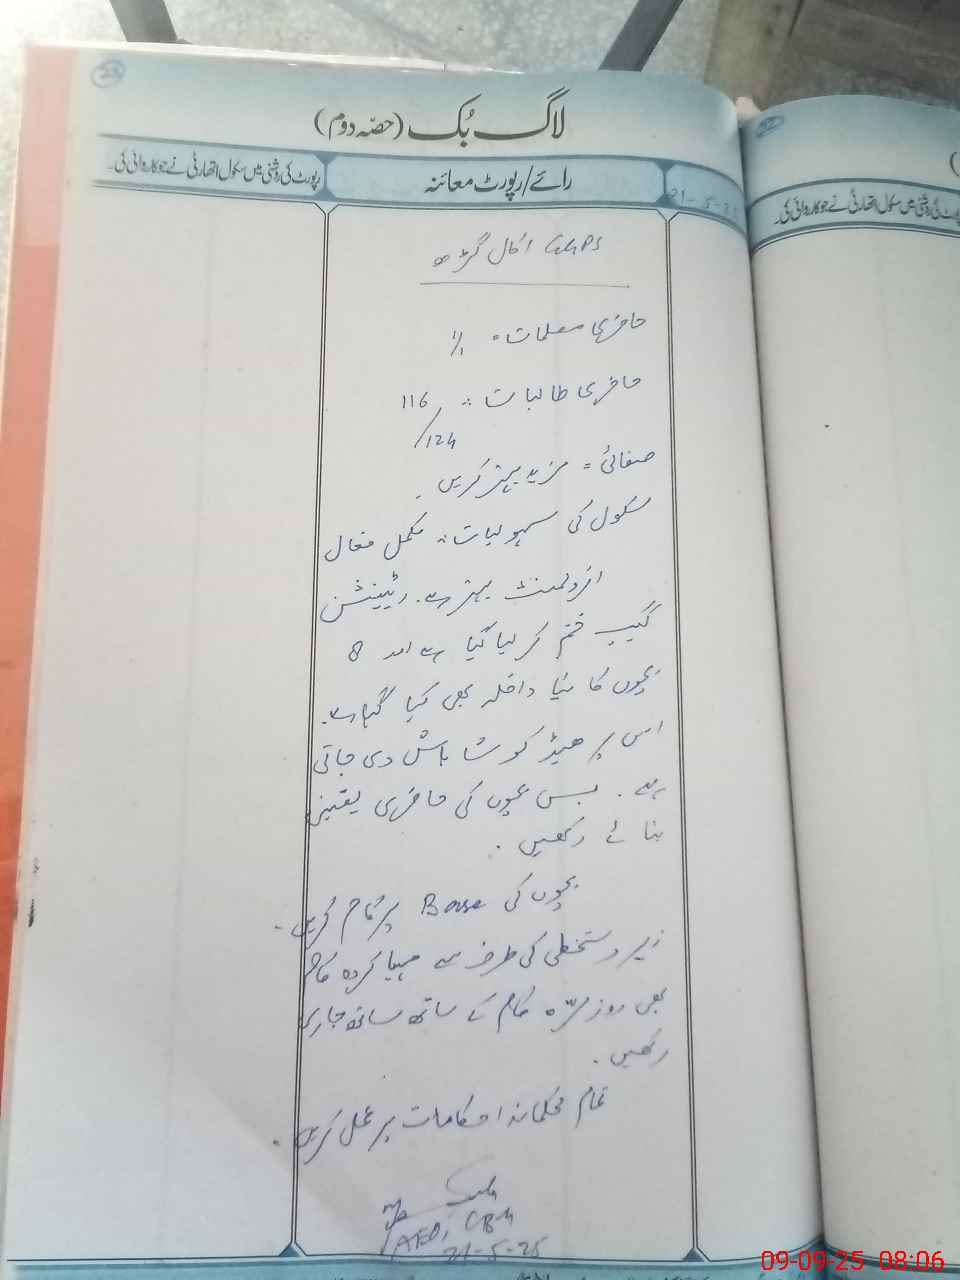 لاگ بُک (حصّہ دوم)
رائے/رپورٹ معائنہ
رپورٹ کی روشنی میں سکول اتھارٹی نے جو کاروائی کی۔
21-5-25
GGPS اکال گڑھ
حاضری معلمات = 1/1
حاضری طالبات :- 116
/124
صفائی = مزید بہتر کریں۔
سکول کی سہولیات :- مکمل فعال
انرولمنٹ بہتر ہے۔ ریٹینشن
گیپ ختم کر لیا گیا ہے اور 8
بچوں کا نیا داخلہ بھی کیا گیا ہے۔
اس پر ہیڈ کو شاباش دی جاتی
ہے۔ بس بچوں کی حاضری یقینی
بنائے رکھیں۔
بچوں کی Base پر کام کریں۔
زیر دستخطی کی طرف سے مہیا کردہ کام
بھی روزمرّہ کام کے ساتھ ساتھ جاری
رکھیں۔
تمام محکمانہ احکامات پر عمل کریں۔
AEO,
21-5-25
رپورٹ کی روشنی میں سکول اتھارٹی نے جو کاروائی کی۔
09-09-25 08:06